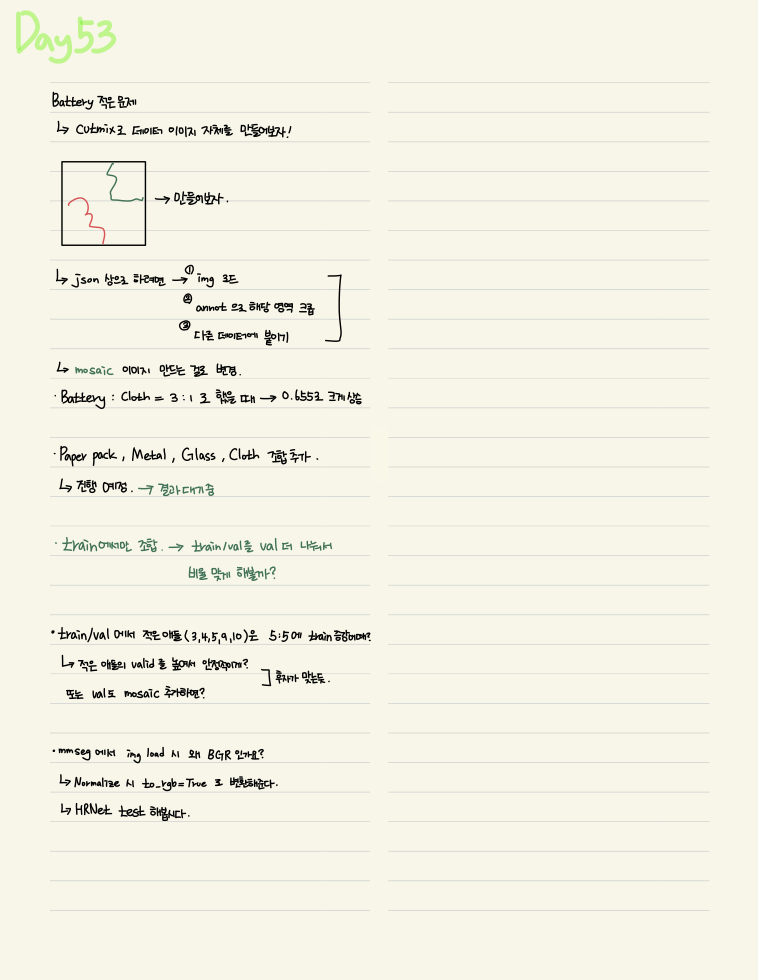 Day53
Battery 적은 문제
↳ Cutmix로 데이터 이미지 자체를 만들어보자!
→ 만들어보자.
↳ json 상으로 하려면 → ① img 로드
② annot 으로 해당 영역 크롭
③ 다른 데이터에 붙이기
↳ mosaic 이미지 만드는 걸로 변경.
· Battery : Cloth = 3 : 1 로 했을 때 → 0.655로 크게 상승
· Paper pack, Metal, Glass, Cloth 조합 추가.
↳ 진행 예정. → 결과 대기중
· train에서만 조합. → train/val 를 val 더 나눠서
비율 맞게 해볼까?
· train/val 에서 적은 애들(3,4,5,9,10)은 5:5에 train 증강이때?
↳ 적은 애들의 valid 를 높여서 안정적이게?
] 후자가 맞는듯.
또는 val도 mosaic 추가하면?
· mmseg 에서 img load 시 왜 BGR 인가요?
↳ Normalize 시 to_rgb=True 로 변환해준다.
↳ HRNet test 해봅시다.